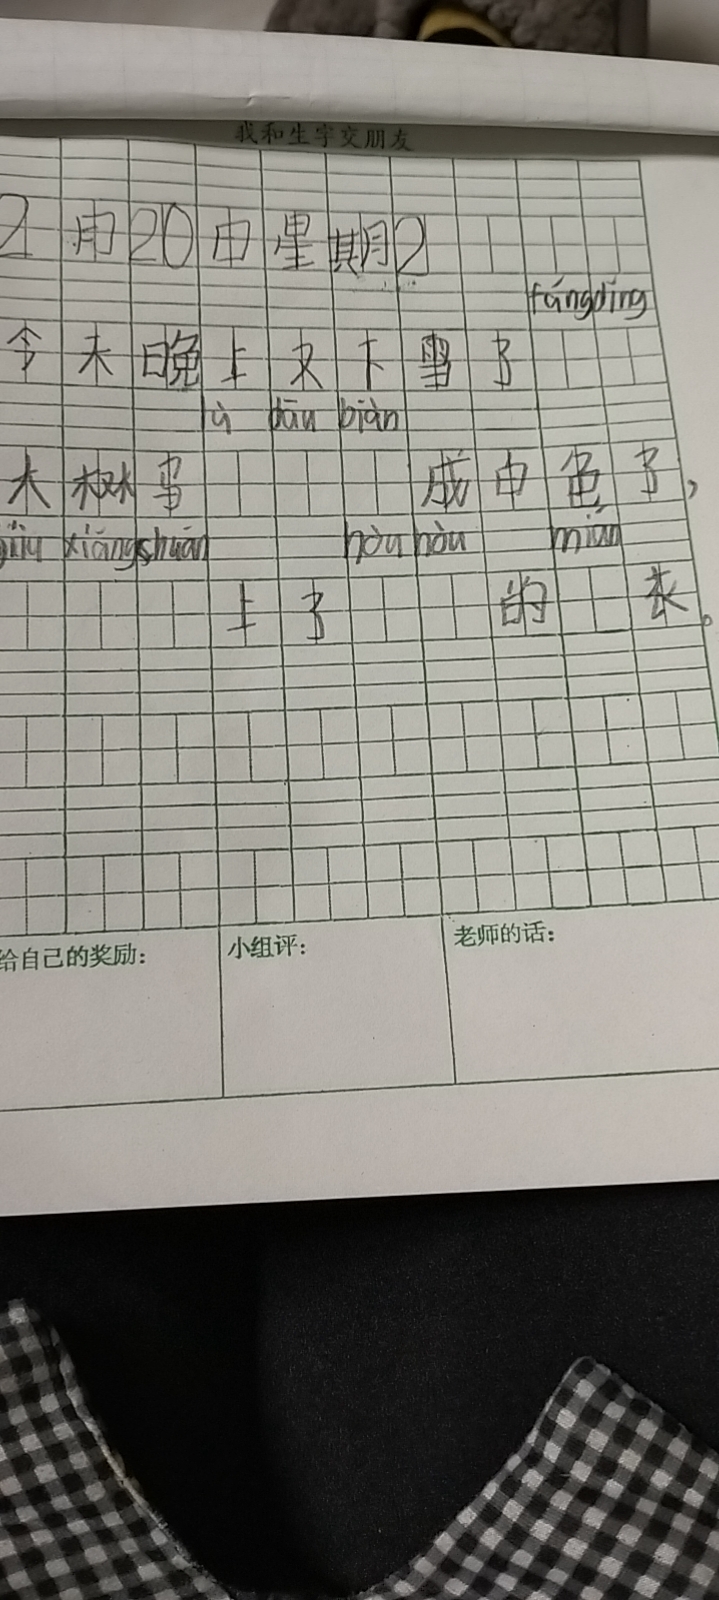 我和生字交朋友
2月20日星期2
fáng dǐng
今天晚上又下雪了
dōu biàn
大树 成白色了，
jiù xiàng chuān hòu hòu mián
上了 的 衣。
给自己的奖励： 小组评： 老师的话：